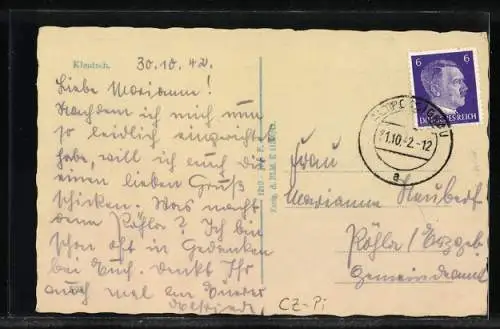 Klentsch.
30.10.42.
Liebe Mariann!
Nachdem ich mich nun
so leidlich eingerichtet
habe, will ich auch Dir
einen lieben Gruß
schicken. Was macht
denn Röhla? Ich bin
schon oft in Gedanken
bei Euch. Denkt Ihr
auch mal an
6 6
DEUTSCHES REICH
10.42-12
a
Frau
Marianne Neubert
Röhla / Erzgeb
Gemeindeamt
CZ-Pi